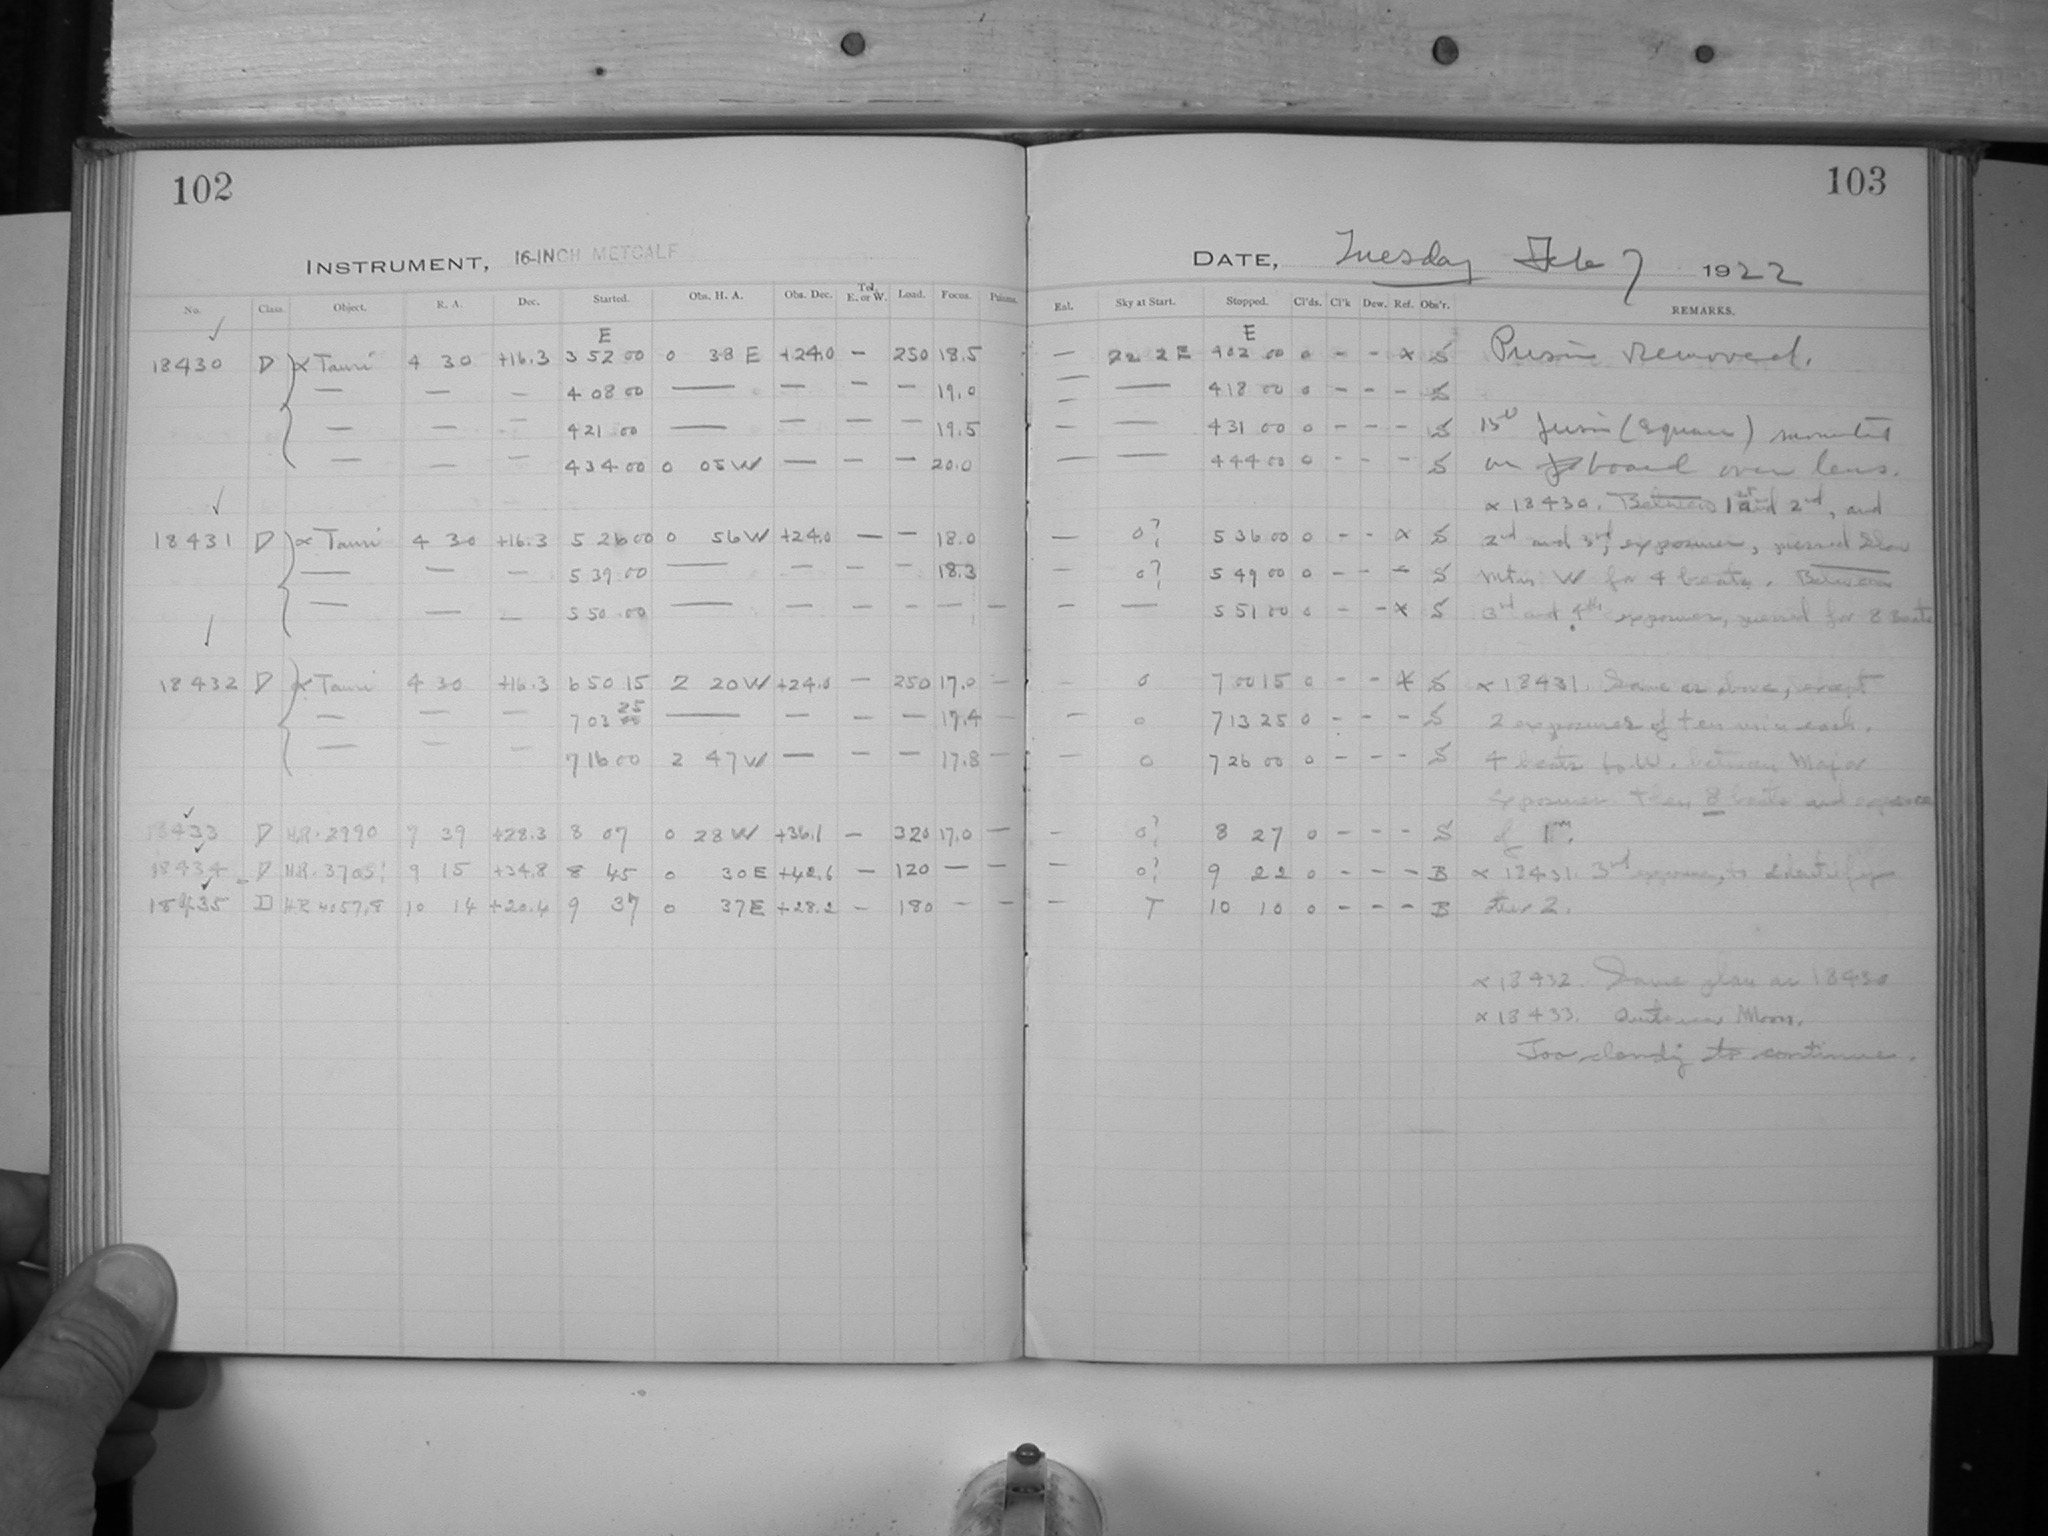 102
INSTRUMENT, 16-INCH METCALF
No. Class. Object. R. A. Dec. Started. Obs. H. A. Obs. Dec. Tel. E. or W. Load. Focus. Prisms.
E
18430 D α Tauri 4 30 +16.3 3 52 00 0 38 E +24.0 — 250 18.5
— — — 4 08 00 — — — — 19.0
— — — 4 21 00 — — — — 19.5
— — — 4 34 00 0 05 W — — — 20.0
18431 D α Tauri 4 30 +16.3 5 26 00 0 56 W +24.0 — — 18.0
— — — 5 39 00 — — — — 18.3
— — — 5 50 00 — — — — — —
18432 D α Tauri 4 30 +16.3 6 50 15 2 20 W +24.0 — 250 17.0 —
— — — 7 03 25 — — — — 17.4 —
— — — 7 16 00 2 47 W — — — 17.8 —
18433 D H.R. 2990 7 39 +28.3 8 07 0 28 W +36.1 — 320 17.0 —
18434 D H.R. 3705 9 15 +34.8 8 45 0 30 E +42.6 — 120 — —
18435 D H.R. 4057,8 10 14 +20.4 9 37 0 37 E +28.2 — 180 — —
103
DATE, Tuesday Feb 7 1922
Enl. Sky at Start. Stopped. Cl'ds. Cl'k Dew. Ref. Obs'r. REMARKS.
E
— 22 2 E 4 02 00 0 - - x S Prism removed.
— — 4 18 00 0 - - - S
— — 4 31 00 0 - - - S 15° prism (square) mounted
— — 4 44 00 0 - - - S on board over lens.
x 18430. Between 1st and 2nd, and
— 0? 5 36 00 0 - - x S 2nd and 3rd, exposures, pressed slow
— 0? 5 49 00 0 - - - S mtn W for 4 beats. Between
— — 5 51 00 0 - - x S 3rd and 4th exposures, pressed for 8 beats
— 0 7 00 15 0 - - x S x 18431. Same as above, except
— 0 7 13 25 0 - - - S 2 exposures of ten min each.
— 0 7 26 00 0 - - - S 4 beats to W. between Major
exposures then 8 beats and exposure
- 0? 8 27 0 - - - S of 1m.
— 0? 9 22 0 - - - B x 18431. 3rd exposure, to identify
— T 10 10 0 - - - B other 2.
x 18432. Same plan as 18430
x 18433. Moon.
Too cloudy to continue.